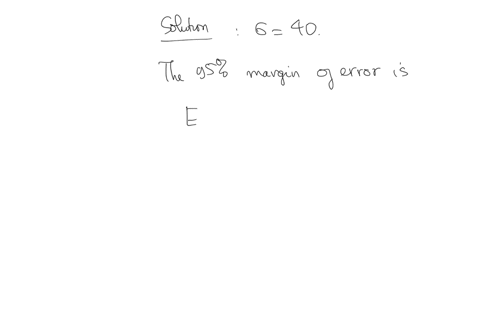 Solution : 6 = 40.
The 95% margin of error is
E